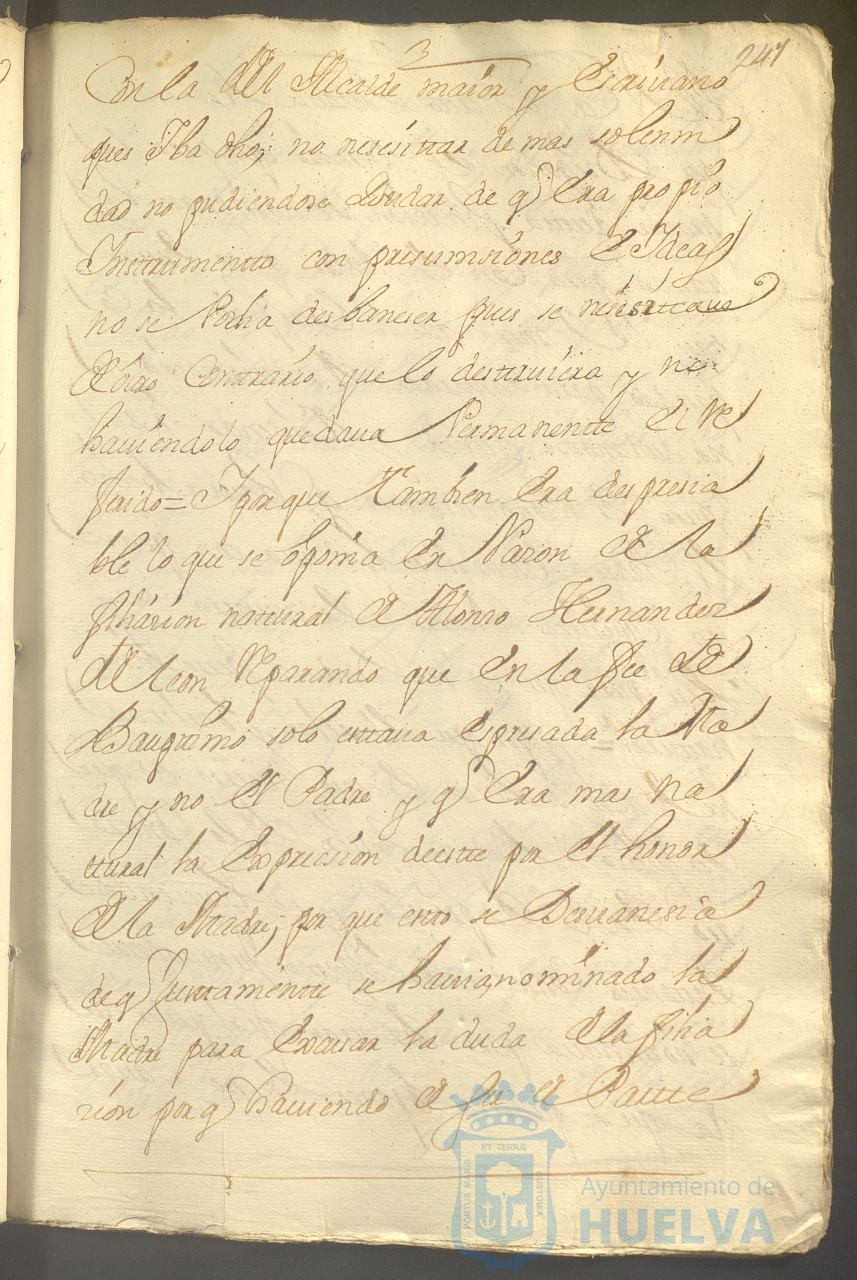 3
247
Con la del Alcalde maior y Escrivano
ques Iba dho; no nesesittar de mas solenni
dad no pudiendose Dudar de q̃ Era propio
Instrumentto con presumsiones e Ideas
no se Podia desbaneser pues se nesesittava
de ottro Conttrario que lo desttruiera y no
haviendolo quedava Permanentte el Re
ferido= I porque ttambien Era despresia
ble lo que se oponia En Razon de la
filiasion nattural de Alonso Hernandez
de leon Reparando que En la fee de
Baupttismo solo esttava Espresada la Ma
dre y no el Padre y q̃ Era mas na
ttural la Expresion de estte por el honor
de la Madre; por que estto se Desvanesia
de q̃ Justtamentte se havia nominado la
Madre para Excusar la duda de la filia
zion por q̃ Haviendo de ser de Partte
ET TERRÆ
PORTUS MARIS
CUSTODIA
Ayuntamiento de
HUELVA